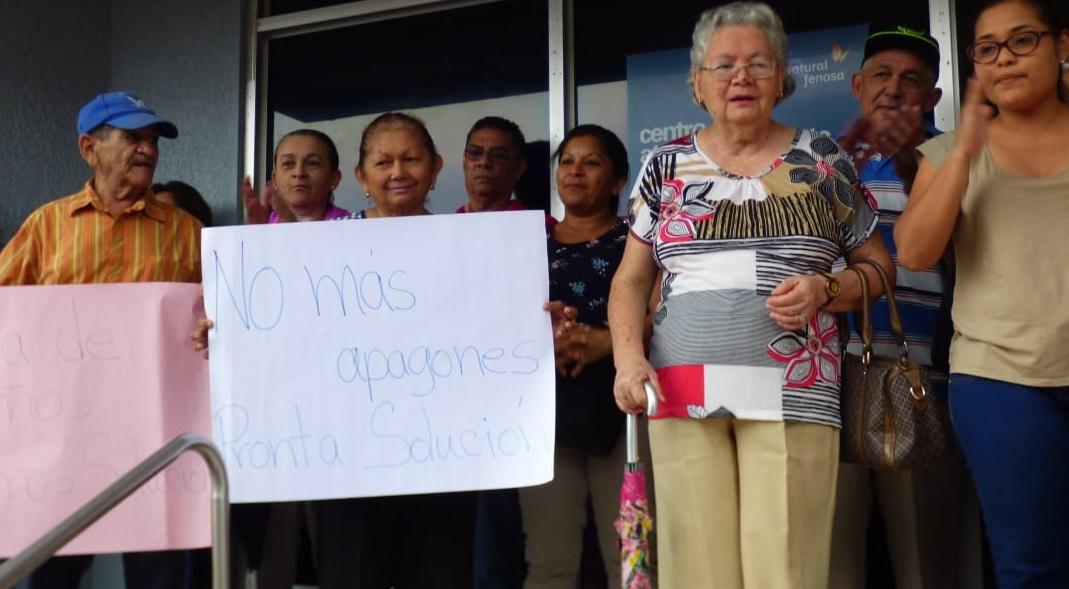 No más
apagones
Pronta Solución
a de
ños
nos Solución
Natural
fenosa
centro